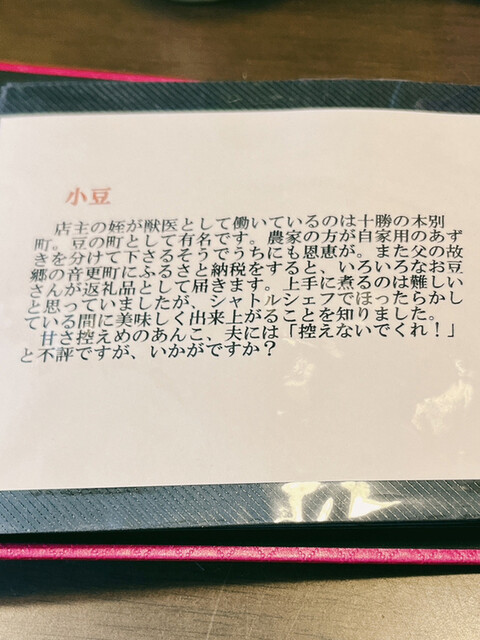 小豆
店主の姪が獣医として働いているのは十勝の本別
町。豆の町として有名です。農家の方が自家用のあず
きを分けて下さるそうでうちにも恩恵が。また父の故
郷の音更町にふるさと納税をすると、いろいろなお豆
さんが返礼品として届きます。上手に煮るのは難しい
と思っていましたが、シャトルシェフでほったらかし
ている間に美味しく出来上がることを知りました。
甘さ控えめのあんこ、夫には「控えないでくれ！」
と不評ですが、いかがですか？